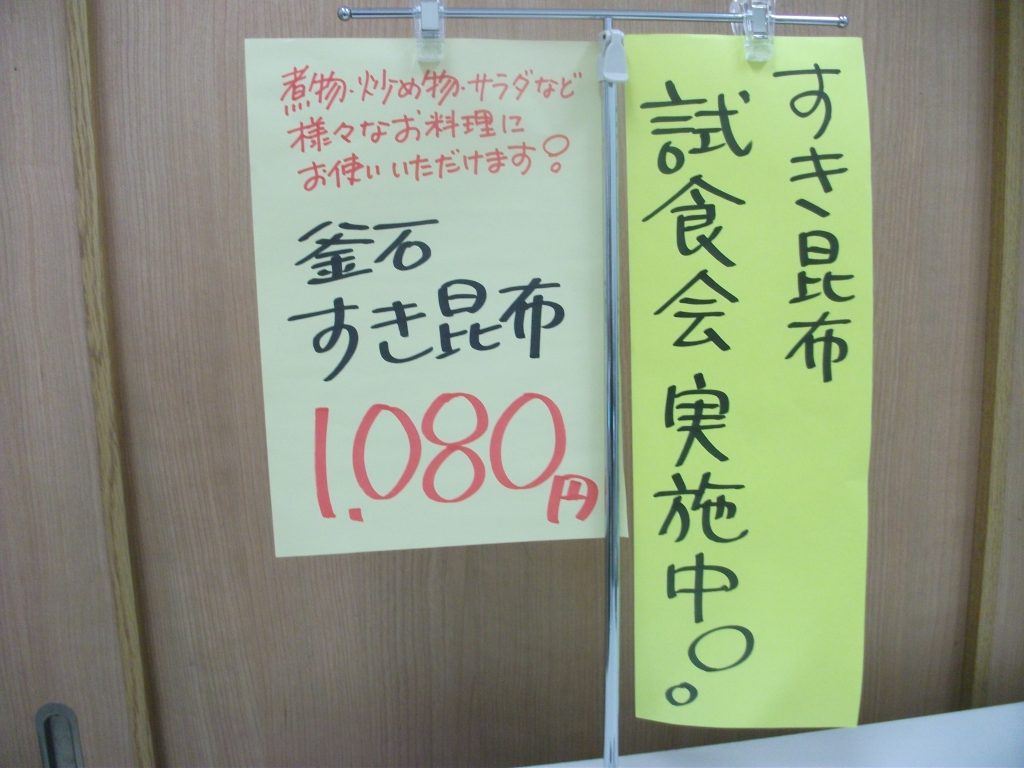 煮物・炒め物・サラダなど
様々なお料理に
お使いいただけます!
釜石
すき昆布
1.080円
すき昆布
試食会 実施中!